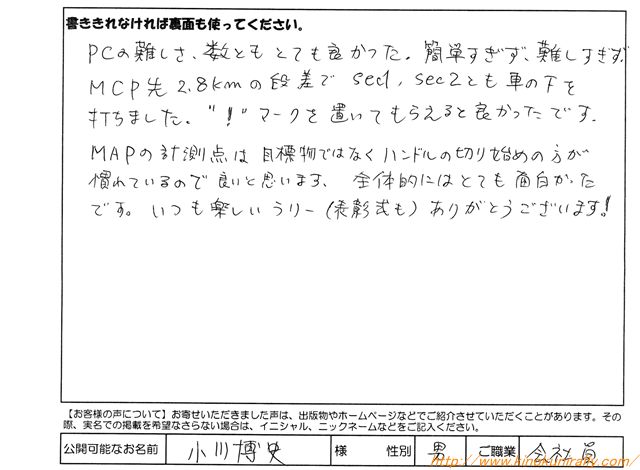 書ききれなければ裏面も使ってください。
PCの難しさ、数ともとても良かった。簡単すぎず、難しすぎず
MCP先2.8kmの段差でsec1, sec2とも車の下を
打ちました。"!"マークを置いてもらえると良かったです。
MAPの計測点は目標物ではなくハンドルの切り始めの方が
慣れているので良いと思います、全体的にはとても面白かった
です。いつも楽しいラリー(表彰式も)ありがとうございます!
【お客様の声について】お寄せいただきました声は、出版物やホームページなどでご紹介させていただくことがあります。その
際、実名での掲載を希望なさらない場合は、イニシャル、ニックネームなどをご記入ください。
公開可能なお名前 小川博史 様 性別 男 ご職業 会社員